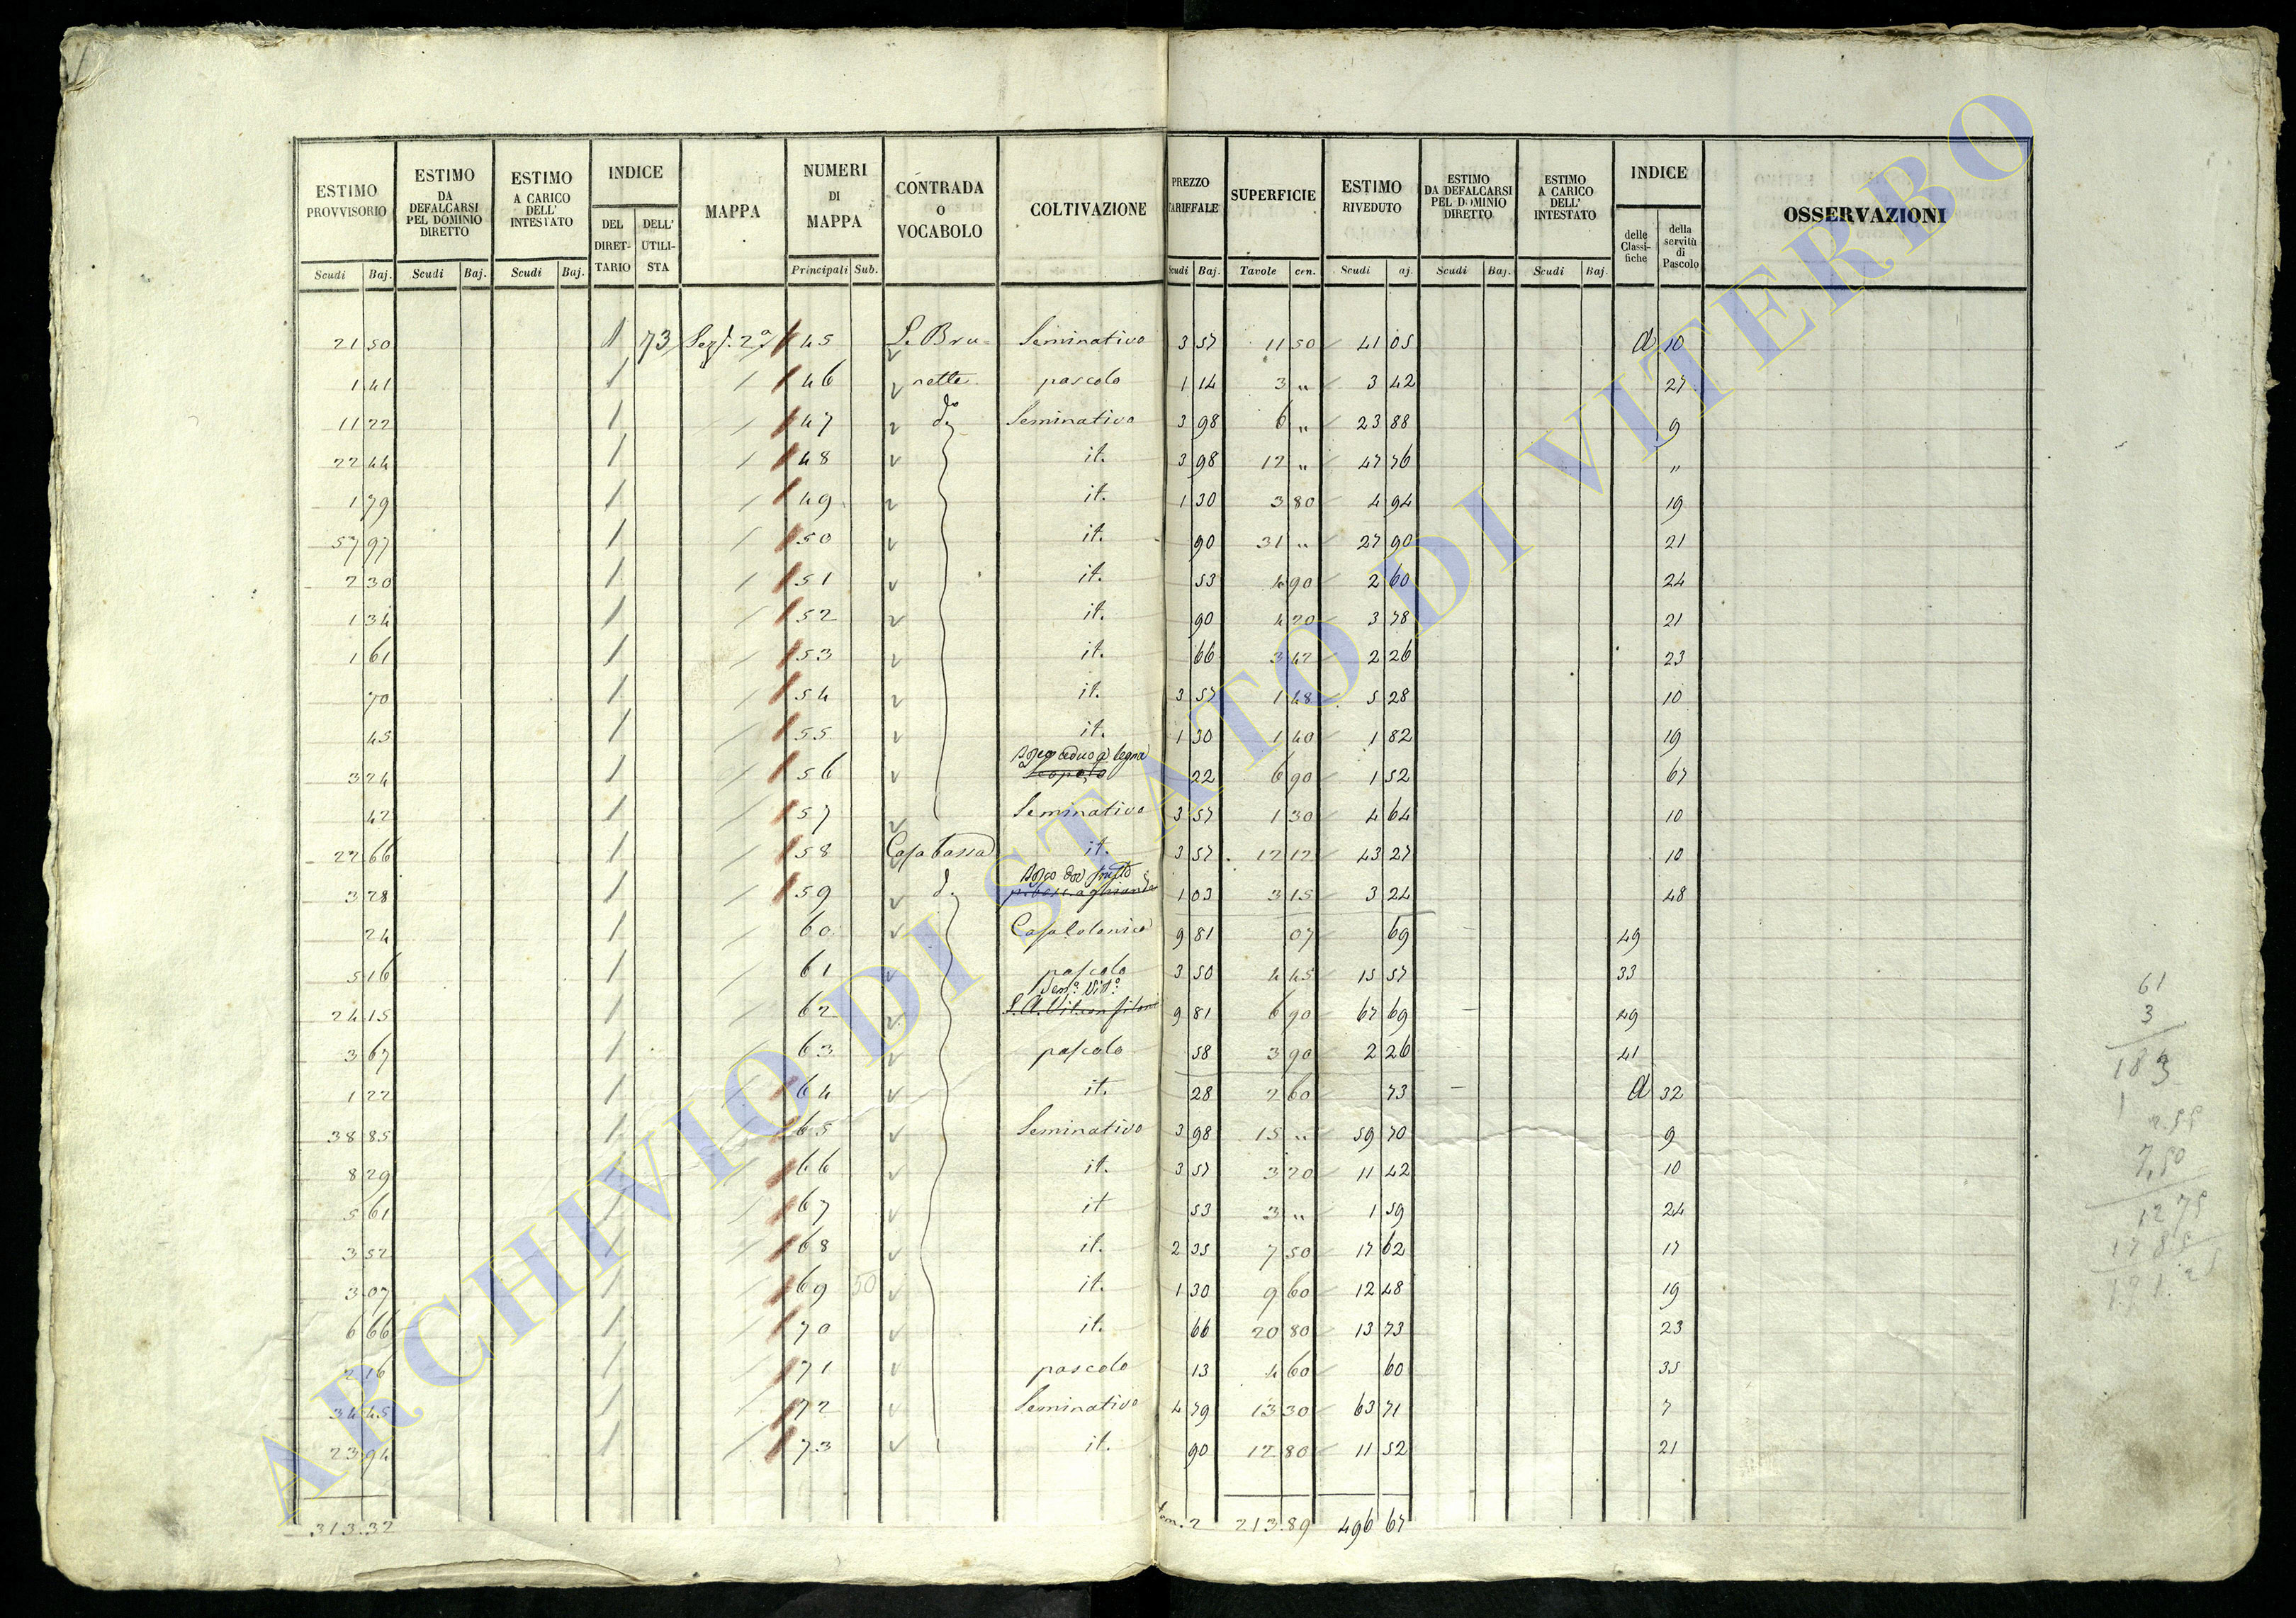 ESTIMO PROVVISORIO | ESTIMO DA DEFALCARSI PEL DOMINIO DIRETTO | ESTIMO A CARICO DELL' INTESTATO | INDICE | MAPPA | NUMERI DI MAPPA | CONTRADA O VOCABOLO | COLTIVAZIONE | PREZZO TARIFFALE | SUPERFICIE | ESTIMO RIVEDUTO | ESTIMO DA DEFALCARSI PEL DOMINIO DIRETTO | ESTIMO A CARICO DELL' INTESTATO | INDICE | OSSERVAZIONI
DEL DIRETTARIO | DELL' UTILISTA | delle Classifiche | della servitù di Pascolo
Scudi | Baj. | Scudi | Baj. | Scudi | Baj. | Principali | Sub. | Scudi | Baj. | Tavole | cen. | Scudi | aj. | Scudi | Baj. | Scudi | Baj.
21 50 | 1 | 73 | Sez. 2a | 45 | Le Bru= | Seminativo | 3 57 | 11 50 | 41 05 | a 10
1 41 | 1 | 46 | nette | pascolo | 1 14 | 3 " | 3 42 | 27
11 22 | 1 | 47 | do | Seminativo | 3 98 | 6 " | 23 88 | 9
22 44 | 1 | 48 | it. | 3 98 | 12 " | 47 76 | "
1 79 | 1 | 49 | it. | 1 30 | 3 80 | 4 94 | 19
57 97 | 1 | 50 | it. | 90 | 31 " | 27 90 | 21
2 30 | 1 | 51 | it. | 53 | 4 90 | 2 60 | 24
1 34 | 1 | 52 | it. | 90 | 4 20 | 3 78 | 21
1 61 | 1 | 53 | it. | 66 | 3 42 | 2 26 | 23
70 | 1 | 54 | it. | 3 57 | 1 48 | 5 28 | 10
45 | 1 | 55 | it. | 1 30 | 1 40 | 1 82 | 19
3 24 | 1 | 56 | Bosco ceduo a legna | 22 | 6 90 | 1 52 | 67
42 | 1 | 57 | Seminativo | 3 57 | 1 30 | 4 64 | 10
22 66 | 1 | 58 | Casa bassa | it. | 3 57 | 12 12 | 43 27 | 10
3 28 | 1 | 59 | d. | Bosco | 1 03 | 3 15 | 3 24 | 48
24 | 1 | 60 | Casa Colonica | 9 81 | 07 | 69 | 49
5 16 | 1 | 61 | pascolo | 3 50 | 4 45 | 15 57 | 33
24 15 | 1 | 62 | Semo. Vito. | 9 81 | 6 90 | 67 69 | 49
3 67 | 1 | 63 | pascolo | 58 | 3 90 | 2 26 | 41
1 22 | 1 | 64 | it. | 28 | 2 60 | 73 | a 32
38 85 | 1 | 65 | Seminativo | 3 98 | 15 " | 59 70 | 9
8 29 | 1 | 66 | it. | 3 57 | 3 20 | 11 42 | 10
5 61 | 1 | 67 | it | 53 | 3 " | 1 59 | 24
3 52 | 1 | 68 | it. | 2 35 | 7 50 | 17 62 | 17
3 07 | 1 | 69 | 50 | it. | 1 30 | 9 60 | 12 48 | 19
6 66 | 1 | 70 | it. | 66 | 20 80 | 13 73 | 23
2 16 | 1 | 71 | pascolo | 13 | 4 60 | 60 | 35
34 45 | 1 | 72 | Seminativo | 4 79 | 13 30 | 63 71 | 7
23 94 | 1 | 73 | it. | 90 | 12 80 | 11 52 | 21
313.32 | 213.89 | 496 67
61
3
183
7.50
12 75
ARCHIVIO DI STATO DI VITERBO